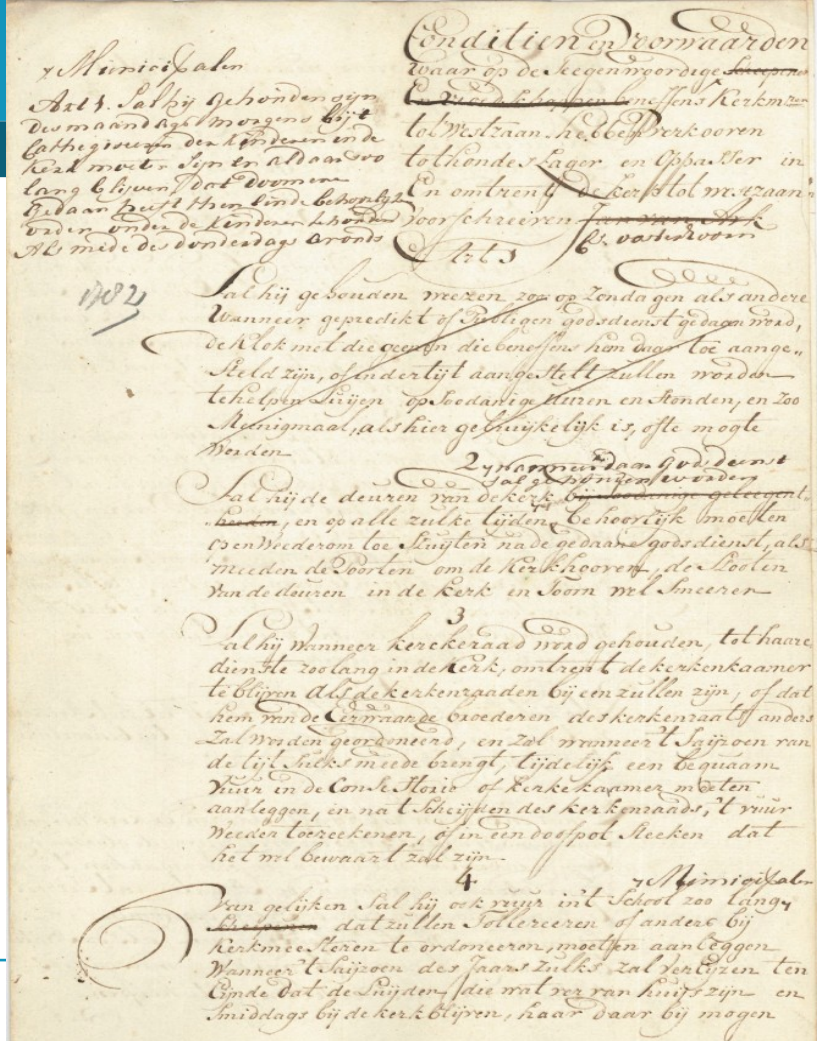 Conditien en Voorwaarden
waar op de Teegenwoordige Scheepenen
En Vroedschappen beneffens Kerkmrn
tot Westzaan hebben Verkooren
tot hondeslager en Oppasser in
En omtrent de kerk tot westzaan
Voorschreiven Jan van Ark
oosterhoorn
Municipalen
Art 1. Sal hij gehouden sijn
des maandags morgens bij t
Cathegiseeren der kinderen in de
kerk moeten sijn en aldaar soo
lang blijven dat Doomenee
gedaan heeft ten einde behoorlijk
orden onder de kinderen te houden
Als mede des donderdags avonds
1782
Art 1
Sal hij gehouden weezen zoo op Zondagen als andere
Wanneer gepredikt of Publiqen godsdienst gedaan word,
de klok met die geenen die beneffens hem daar toe aange„
steld zijn, of indertijt aangestelt zullen worden
te helpen Luijen op soedanige Uuren en stonden, en zoo
Meenigmaal, als hier gebruijkelijk is, ofte mogte
Werden
2 wanneer daar Godsdienst
sal gehouden worden
Sal hij de deuren van de kerk bij zoodanige geleegent
heeden, en op alle zulke tijden, behoorlijk moeten
openWeederom toe sluyten na de gedaane godsdienst, als
meeden de Poorten om de Kerkhooven, de Stoolen
van de deuren in de kerk en Toorn wel Smeeren
3
Sal hij Wanneer kerckeraad word gehouden, tot haare
dienste zoo lang in de Kerk, omtrent de kerkenkaamer
te blijven Als de kerkenraaden bij een zullen zijn, of dat
hem van de Eerwaarde broederen des kerkenraats anders
Zal worden geordoneerd, en Zal wanneer 't Saijzoen van
de tijt Sulks meede brengt, tijdelijk een bequaam
Vuur in de Consistorie of kerkekaamer moeten
aanleggen, en na 't scheijden des kerkenraads, 't vuur
Weeder toereekenen, of in een doofpot steeken dat
het wel bewaart zal zijn.
4 Municipalen
Van gelijken Sal hij ook vuur in't School zoo lang
Scheepenen dat zullen Tollereeren of anders bij
Kerkmeesteren te ordoneeren, moeten aanleggen
Wanneer 't Saijzoen des Jaars Zulks zal Vereijzen ten
Eijnde dat de Luijden, die wat ver van huijs zijn en
smiddags bij de kerk blijven, haar daar bij mogen